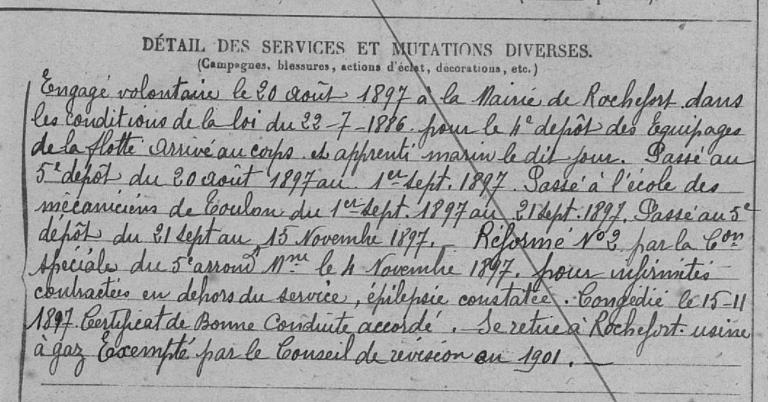 DÉTAIL DES SERVICES ET MUTATIONS DIVERSES.
(Campagnes, blessures, actions d'éclat, décorations, etc.)
Engagé volontaire le 20 août 1897 à la Mairie de Rochefort dans
les conditions de la loi du 22-7-1886 pour le 4e dépôt des Équipages
de la flotte. Arrivé au corps et apprenti marin le dit jour. Passé au
5e dépôt du 20 août 1897 au 1er sept. 1897. Passé à l'école des
mécaniciens de Toulon du 1er sept. 1897 au 21 sept. 1897. Passé au 5e
dépôt du 21 sept au 15 Novembre 1897. Réformé No 2 par la Con
spéciale du 5e arrondt Mme le 4 Novembre 1897. pour infirmités
contractées en dehors du service, épilepsie constatée. Congédié le 15-11
1897 Certificat de Bonne Conduite accordé. Se retire à Rochefort usine
à gaz Exempté par le Conseil de révision en 1901.